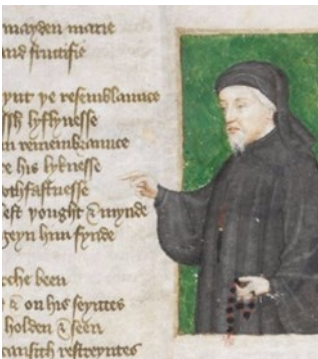 mayden marie
and fructifie
ynt þe resemblaunce
ssh lyflynesse
n remembraunce
e his lyknesse
othfastnesse
est þought & mynde
geyn him fynde
cche been
& on his seyntes
holden & seen
ausith restreyntes